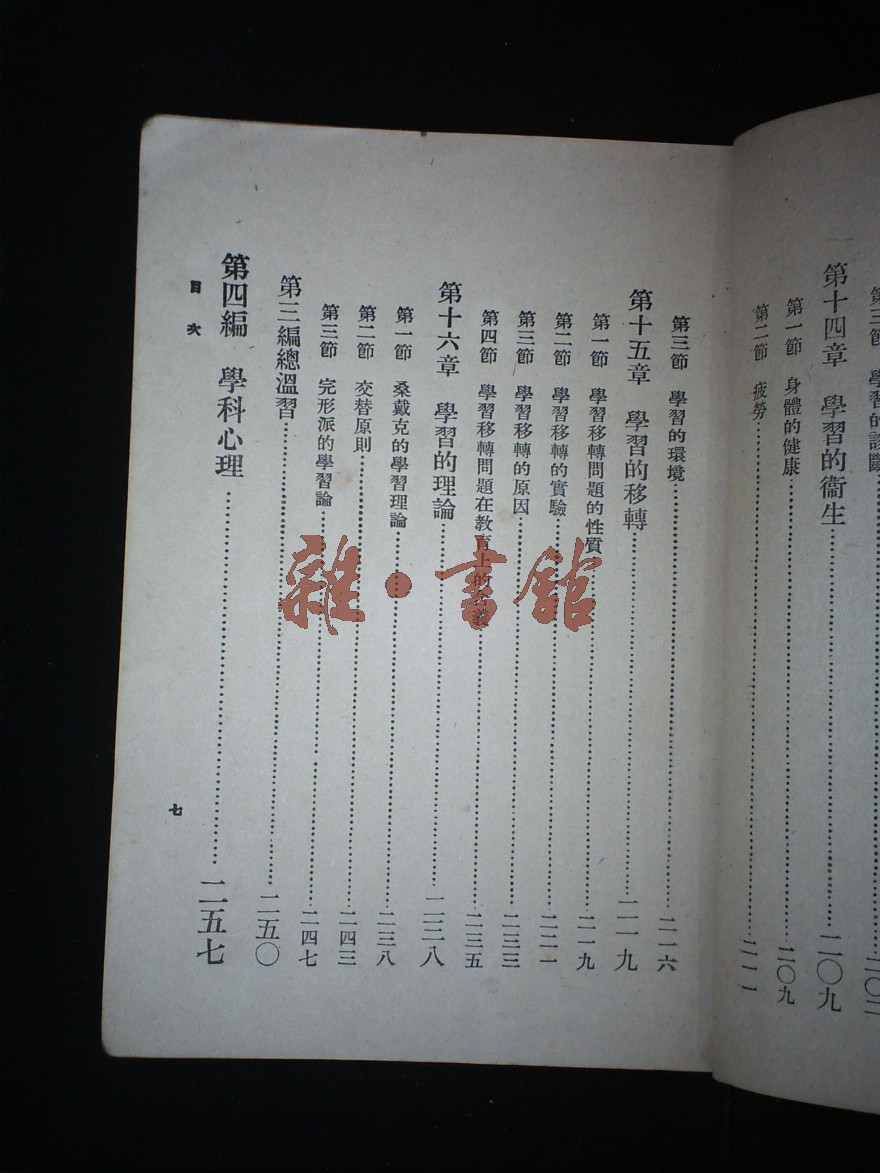 第十四章　學習的衞生……二〇九
第一節　身體的健康……二〇九
第二節　疲勞……二一一
第三節　學習的環境……二一六
第十五章　學習的移轉……二一九
第一節　學習移轉問題的性質……二一九
第二節　學習移轉的實驗……二二一
第三節　學習移轉的原因……二三三
第四節　學習移轉問題在教育上的……二三五
第十六章　學習的理論……二三八
第一節　桑戴克的學習理論……二三八
第二節　交替原則……二四三
第三節　完形派的學習論……二四七
第三編總溫習……二五〇
第四編　學科心理……二五七
目次
七
雜·書館